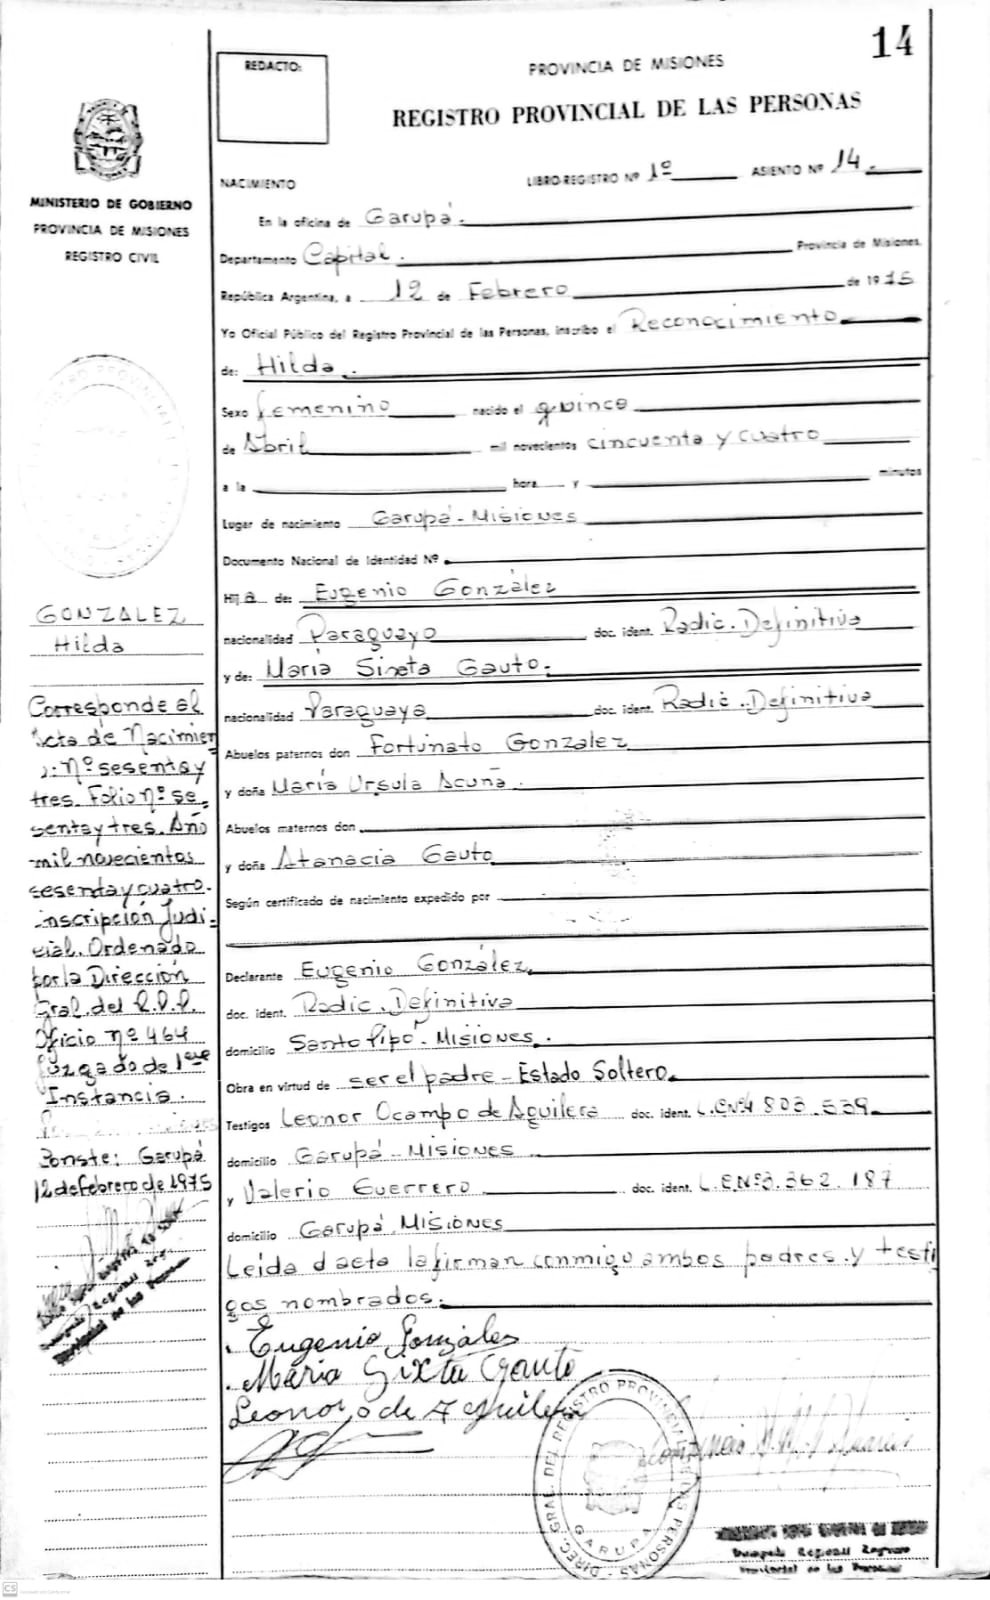 14
REDACTO:
PROVINCIA DE MISIONES
REGISTRO PROVINCIAL DE LAS PERSONAS
NACIMIENTO
LIBRO-REGISTRO Nº 1º ASIENTO Nº 14.
En la oficina de Garupá.
Departamento Capital. Provincia de Misiones,
República Argentina, a 12 de Febrero de 1975
Yo Oficial Público del Registro Provincial de las Personas, inscribo el Reconocimiento
de: Hilda.
Sexo femenino nacido el quince
de Abril mil novecientos cincuenta y cuatro
a la hora y minutos
Lugar de nacimiento Garupá - Misiones
Documento Nacional de Identidad Nº
Hija de: Eugenio González
nacionalidad Paraguayo doc. ident. Radic. Definitiva
y de: María Sixeta Gauto.
nacionalidad Paraguaya doc. ident. Radic. Definitiva
Abuelos paternos don Fortunato Gonzalez
y doña María Ursula Acuña.
Abuelos maternos don
y doña Atanacia Gauto
Según certificado de nacimiento expedido por
Declarante Eugenio González.
doc. ident. Radic. Definitiva
domicilio Santo Pipó - Misiones.
Obra en virtud de ser el padre - Estado Soltero.
Testigos Leonor Ocampo de Aguilera doc. ident. L.E.Nº4 803.539
domicilio Garupá - Misiones
y Valerio Guerrero doc. ident. L.E.Nº3.362.187
domicilio Garupá Misiones
Leida el acta la firman conmigo ambos padres y testi
gos nombrados.
Eugenio Gonzáles
María Sixta Gauto
Leonor O de Aguilera
MINISTERIO DE GOBIERNO
PROVINCIA DE MISIONES
REGISTRO CIVIL
GONZALEZ
Hilda
Corresponde al
Acta de Nacimien
Nº sesenta y
tres. Folio Nº se
senta y tres. Año
mil novecientos
sesenta y cuatro.
inscripción Judi-
cial. Ordenado
por la Dirección
Gral. del R.P.P.
Oficio nº 464
Juzgado de 1era
Instancia.
Conste: Garupá
12 de febrero de 1975
DIREC. GRAL. DEL REGISTRO PROVINCIAL DE LAS PERSONAS
GARUPA
Provincial de las Personas
CS